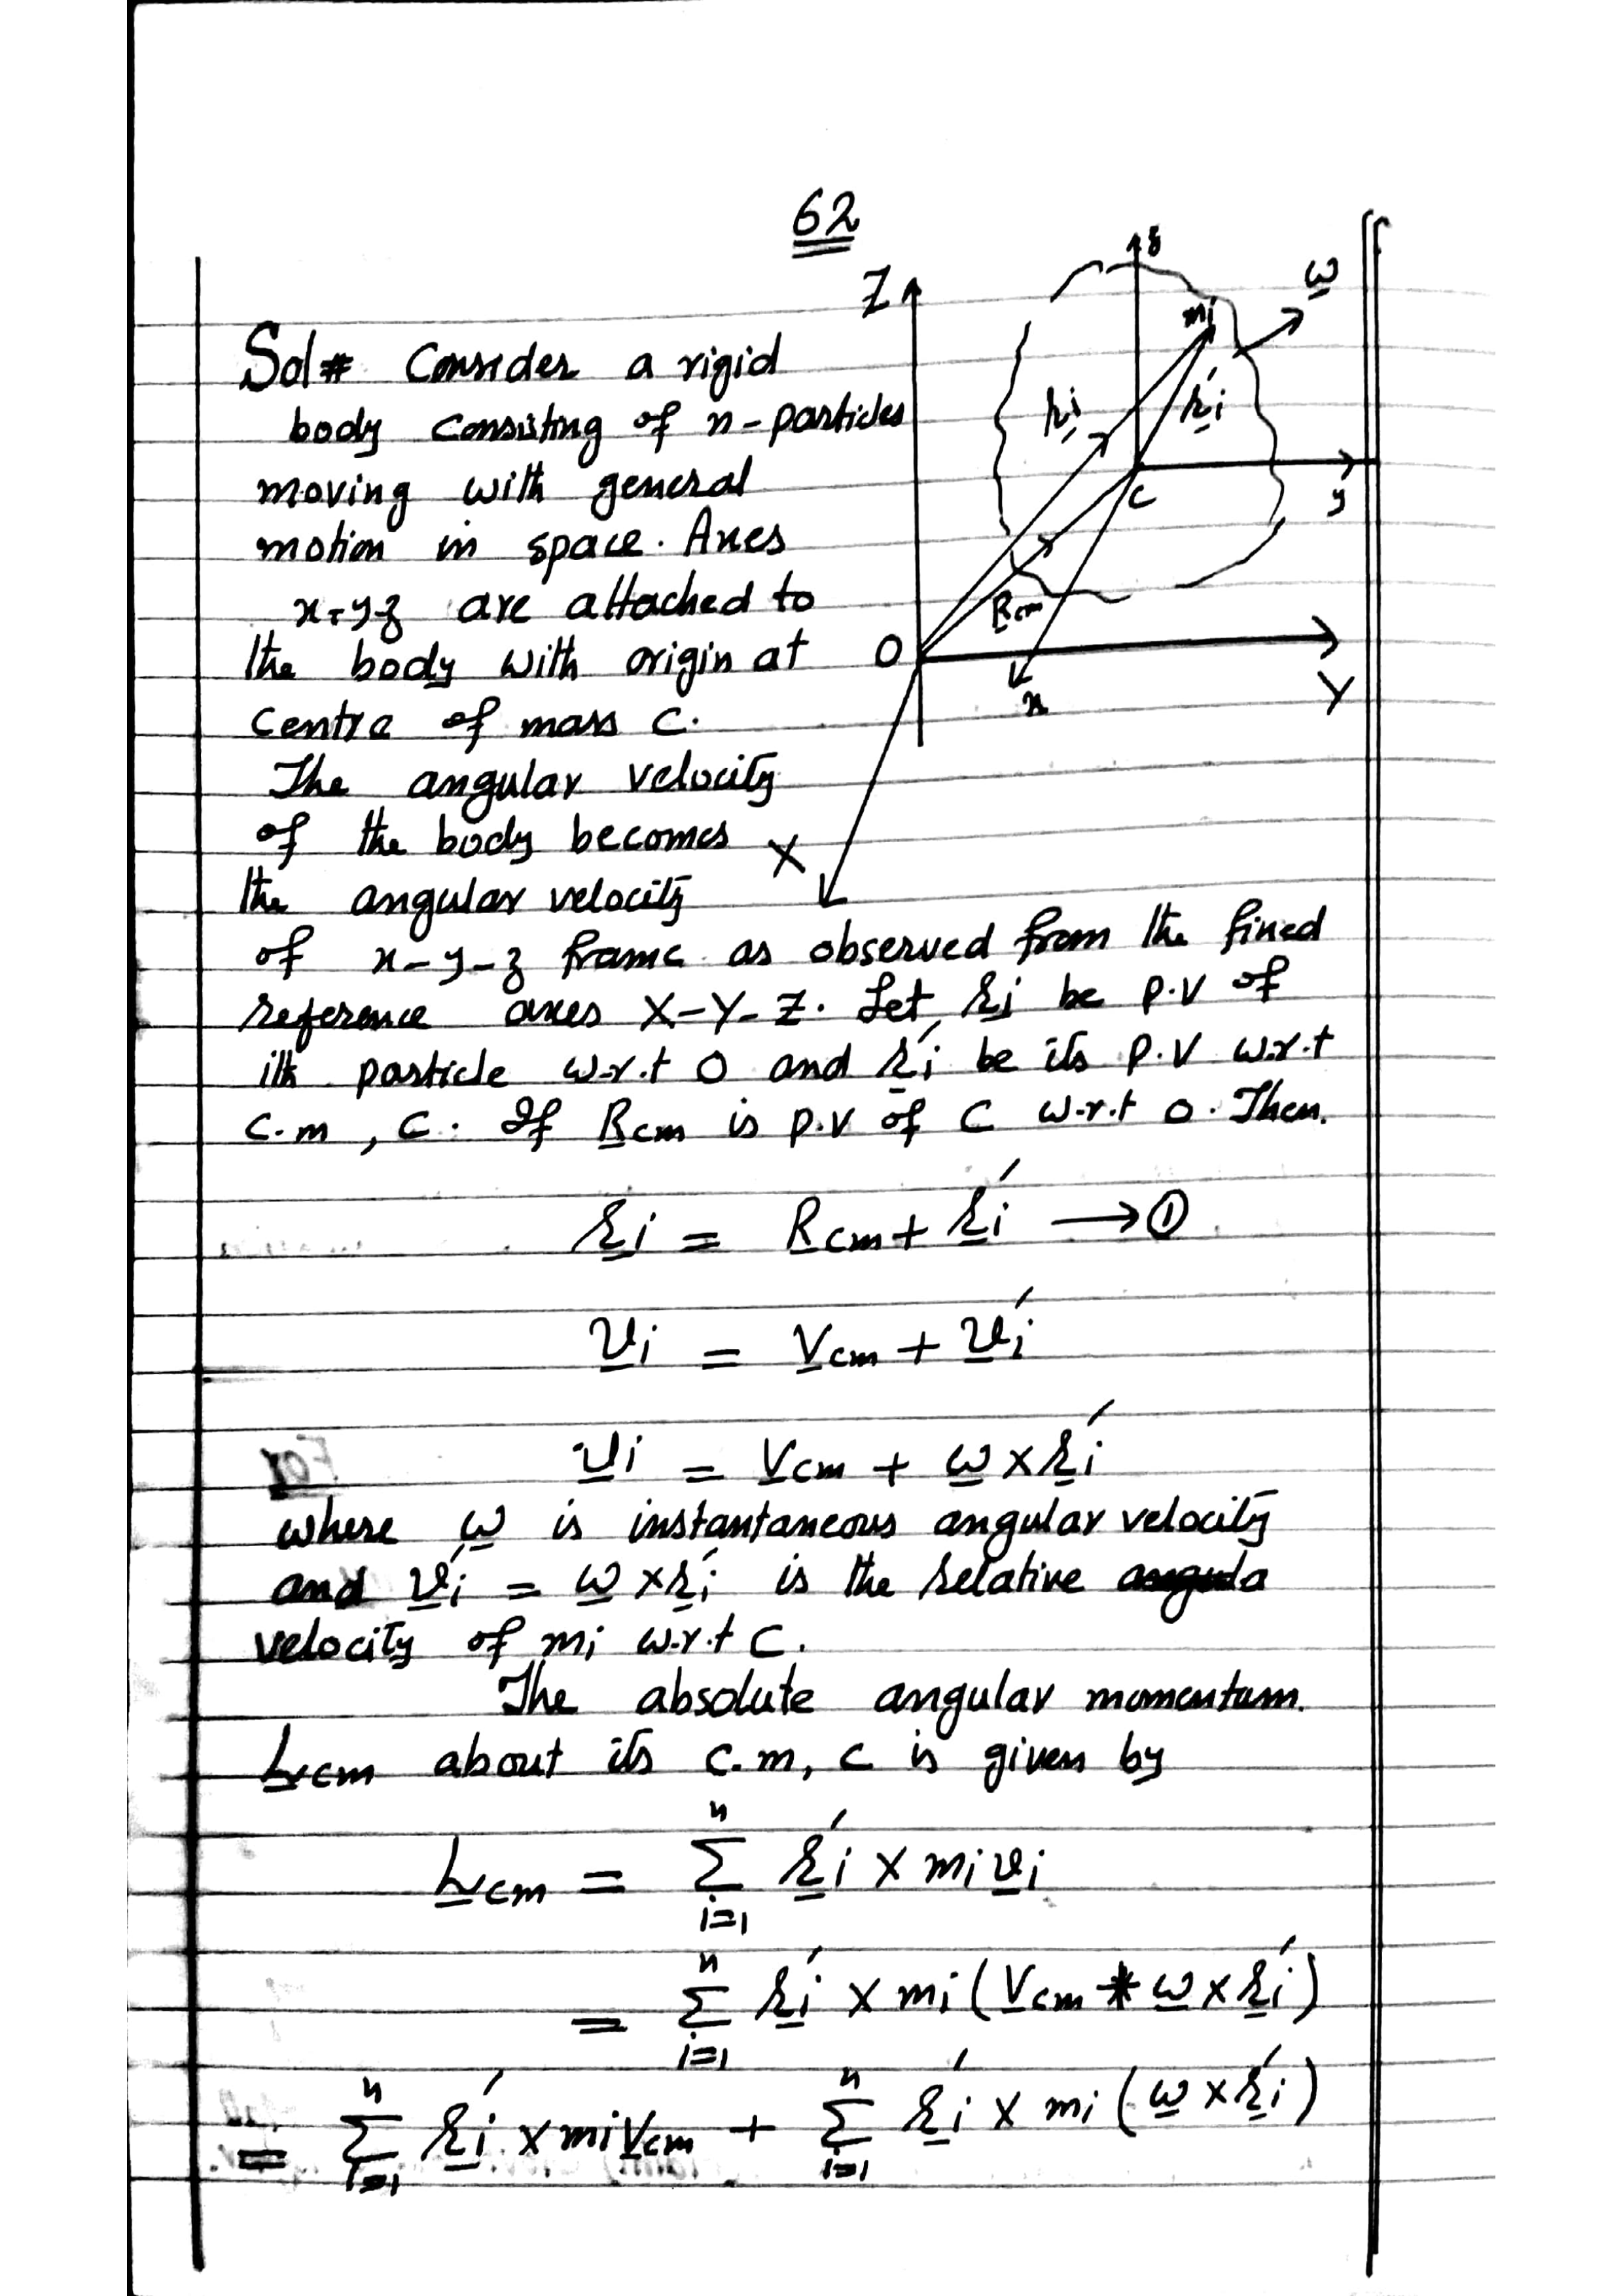 62
Z
z
ω
mi
ri
r'i
C
y
Rcm
O
x
Y
X
Sol# Consider a rigid
body consisting of n-particles
moving with general
motion in space. Axes
x-y-z are attached to
the body with origin at
centre of mass C.
The angular velocity
of the body becomes
the angular velocity
of x-y-z frame as observed from the fixed
reference axes X-Y-Z. Let ri be p.v of
ith particle w.r.t O and r'i be its p.v w.r.t
c.m, C. If Rcm is p.v of C w.r.t O. Then.
ri = Rcm + r'i → ①
vi = Vcm + v'i
vi = Vcm + ω × r'i
where ω is instantaneous angular velocity
and v'i = ω × r'i is the relative
velocity of mi w.r.t C.
The absolute angular momentum.
Lcm about its c.m, C is given by
Lcm = n Σ i=1 r'i × mi vi
= n Σ i=1 r'i × mi (Vcm + ω × r'i)
= n Σ i=1 r'i × mi Vcm + n Σ i=1 r'i × mi (ω × r'i)